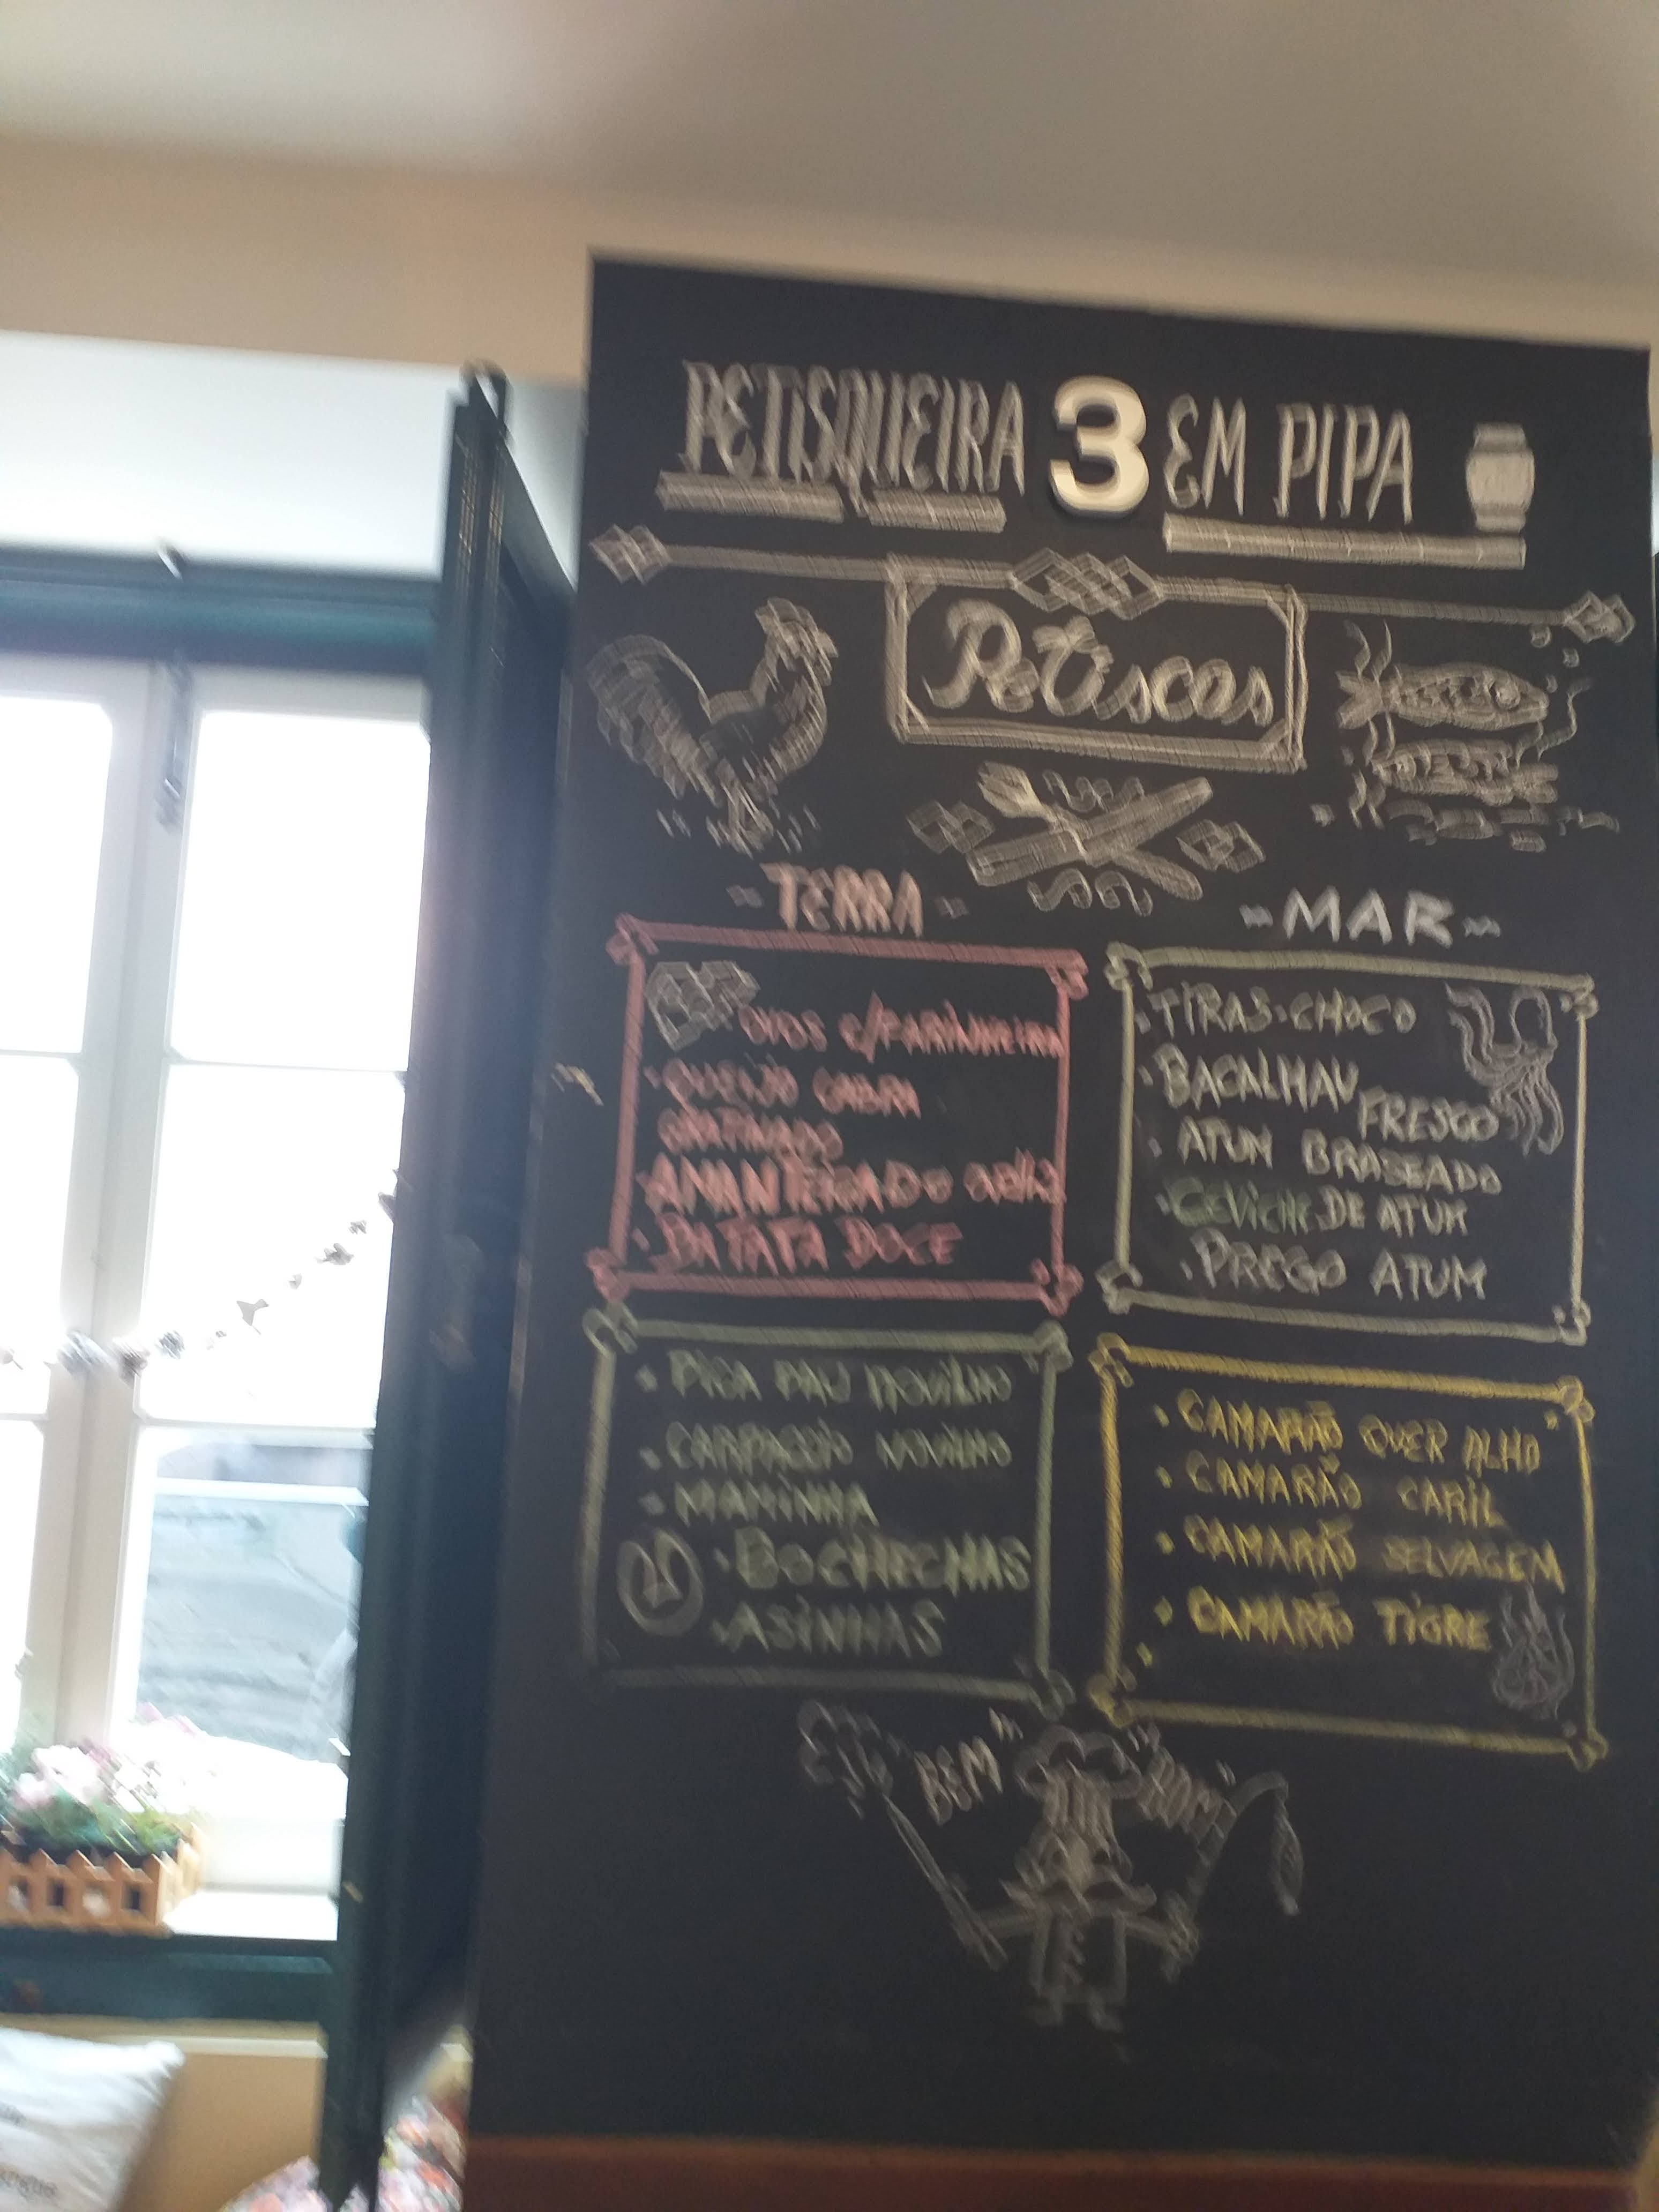 PETISQUEIRA 3 EM PIPA
Petiscos
TERRA
OVOS C/FARINHEIRA
QUEIJO CABRA
GRATINADO
AMANTEIGADO OVELHA
BATATA DOCE
MAR
TIRAS-CHOCO
BACALHAU
FRESCO
ATUM BRASEADO
CEVICHE DE ATUM
PREGO ATUM
PICA PAU NOVILHO
CARPACCIO NOVILHO
MAMINHA
BOCHECHAS
ASINHAS
CAMARÃO QUER ALHO
CAMARÃO CARIL
CAMARÃO SELVAGEM
CAMARÃO TIGRE
BEM